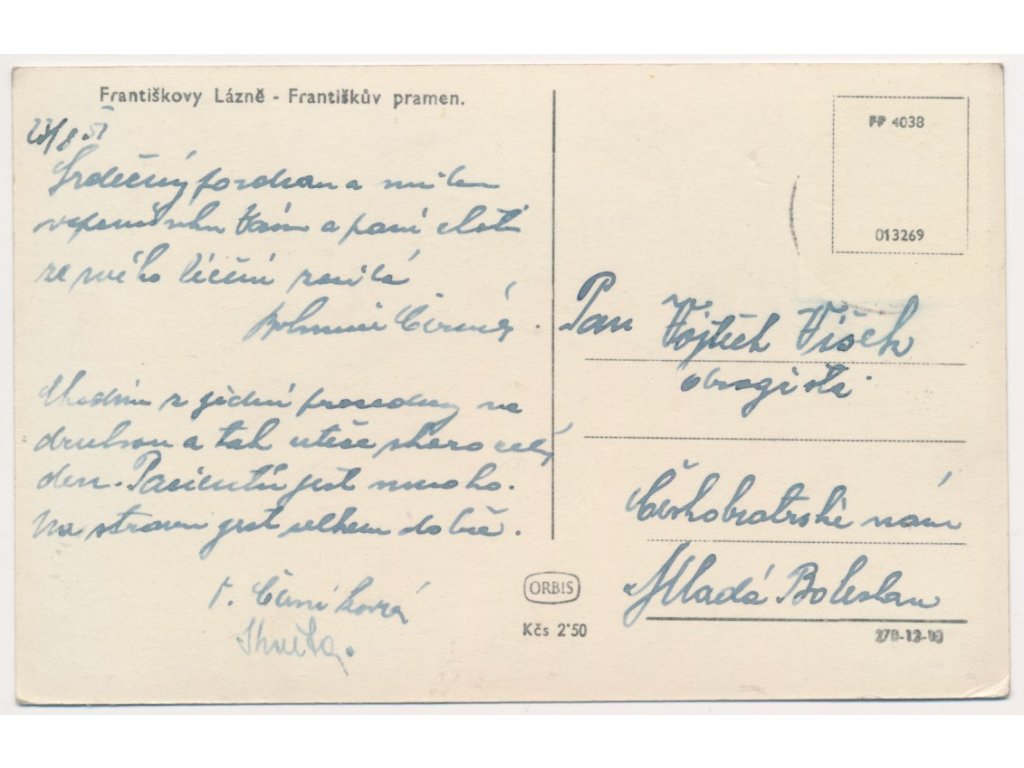 Františkovy Lázně - Františkův pramen.
23/8 51
Srdečný pozdrav a milou
vzpomínku Vám a paní choti
ze svého léčení zasílá
Černá.
Chodím z jedné procedury na
druhou a tak uteče skoro celý
den. Pacientů jest mnoho.
Na stravu jest celkem dobře.
Černíková
FP 4038
013269
Pan Vojtěch Víšek
drogista
Českobratrské nám
Mladá Boleslav
ORBIS
Kčs 2'50
279-12-10